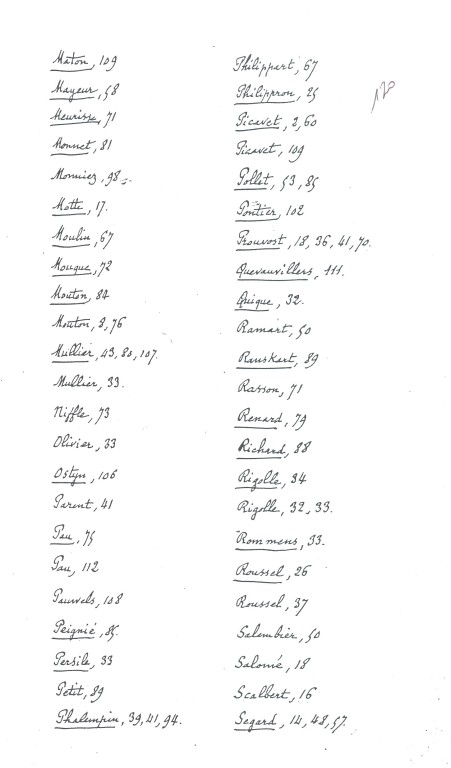 Maton, 109
Mayeur, 58
Meurisse, 71
Monnet, 81
Monniez, 98.
Motte, 17.
Moulin, 67
Mouque, 72
Mouton, 84
Mouton, 2, 76
Mullier, 43, 80, 107.
Mullier, 33.
Niffle, 73
Olivier, 33
Ostyn, 106
Parent, 41
Pau, 75
Pau, 112
Pauwels, 108
Peignié, 85.
Persile, 33
Petit, 89
Phalempin, 39, 41, 94.
Philippart, 67
Philippron, 25
Picavet, 2, 60
Picavet, 109
Pollet, 53, 85
Pontier, 102
Prouvost, 18, 36, 41, 70.
Quevauvillers, 111.
Quique, 32.
Ramart, 50
Rauskart, 89
Rasson, 71
Renard, 79
Richard, 88
Rigolle, 34
Rigolle, 32, 33.
Rommens, 33.
Roussel, 26
Roussel, 37
Salembier, 50
Salomé, 18
Scalbert, 16
Segard, 14, 48, 57.